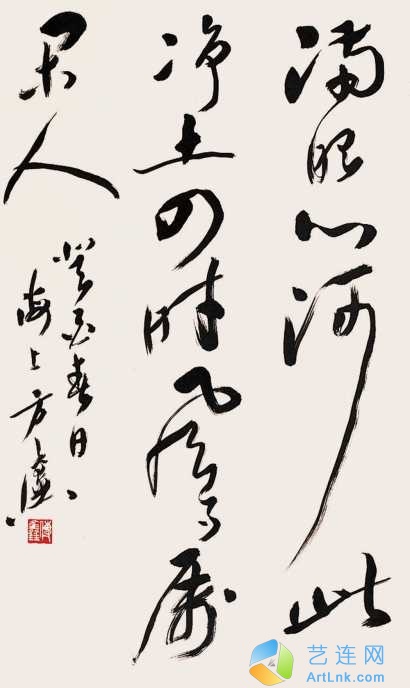 满眼山河此
净土四时风月属
闲人
癸酉春日
海上方传鑫
艺连网
ArtLnk.com